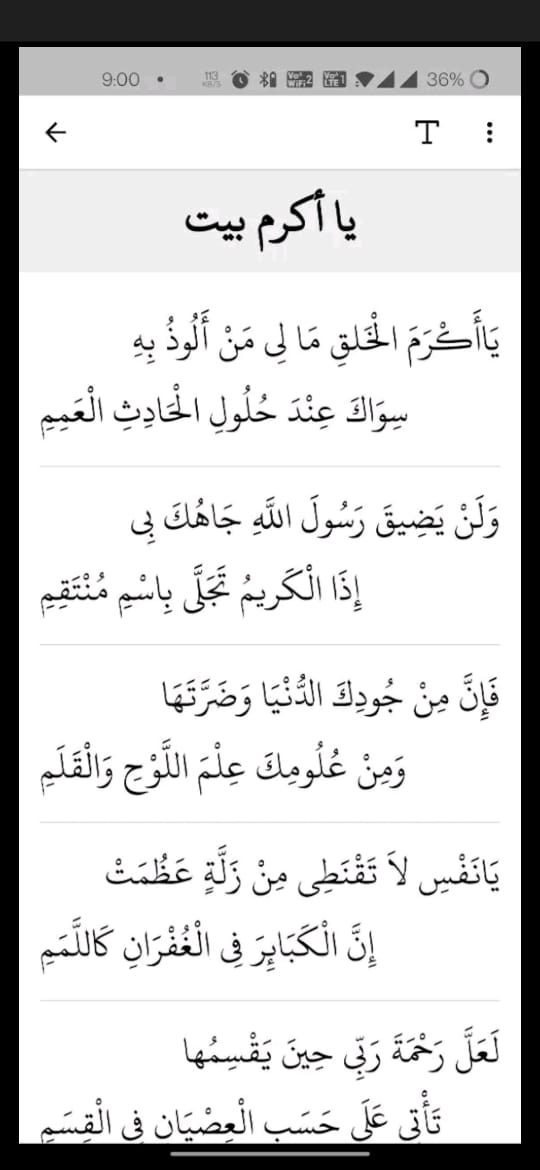 9:00
113 KB/S
Vo) WiFi 2
Vo) LTE 1
36%
T
يا أكرم بيت
يَاأَكْرَمَ الْخَلقِ مَا لِى مَنْ أَلُوذُ بِهِ
سِوَاكَ عِنْدَ حُلُولِ الْحَادِثِ الْعَمِمِ
وَلَنْ يَضِيقَ رَسُولَ اللَّهِ جَاهُكَ بِى
إِذَا الْكَرِيمُ تَجَلَّى بِاسْمِ مُنْتَقِمِ
فَإِنَّ مِنْ جُودِكَ الدُّنْيَا وَضَرَّتَهَا
وَمِنْ عُلُومِكَ عِلْمَ اللَّوْحِ وَالْقَلَمِ
يَانَفْسِ لاَ تَقْنَطِى مِنْ زَلَّةٍ عَظُمَتْ
إِنَّ الْكَبَائِرَ فِى الْغُفْرَانِ كَاللَّمَمِ
لَعَلَّ رَحْمَةَ رَبِّى حِينَ يَقْسِمُها
تَأْتِى عَلَى حَسَبِ الْعِصْيَانِ فِى الْقِسَمِ